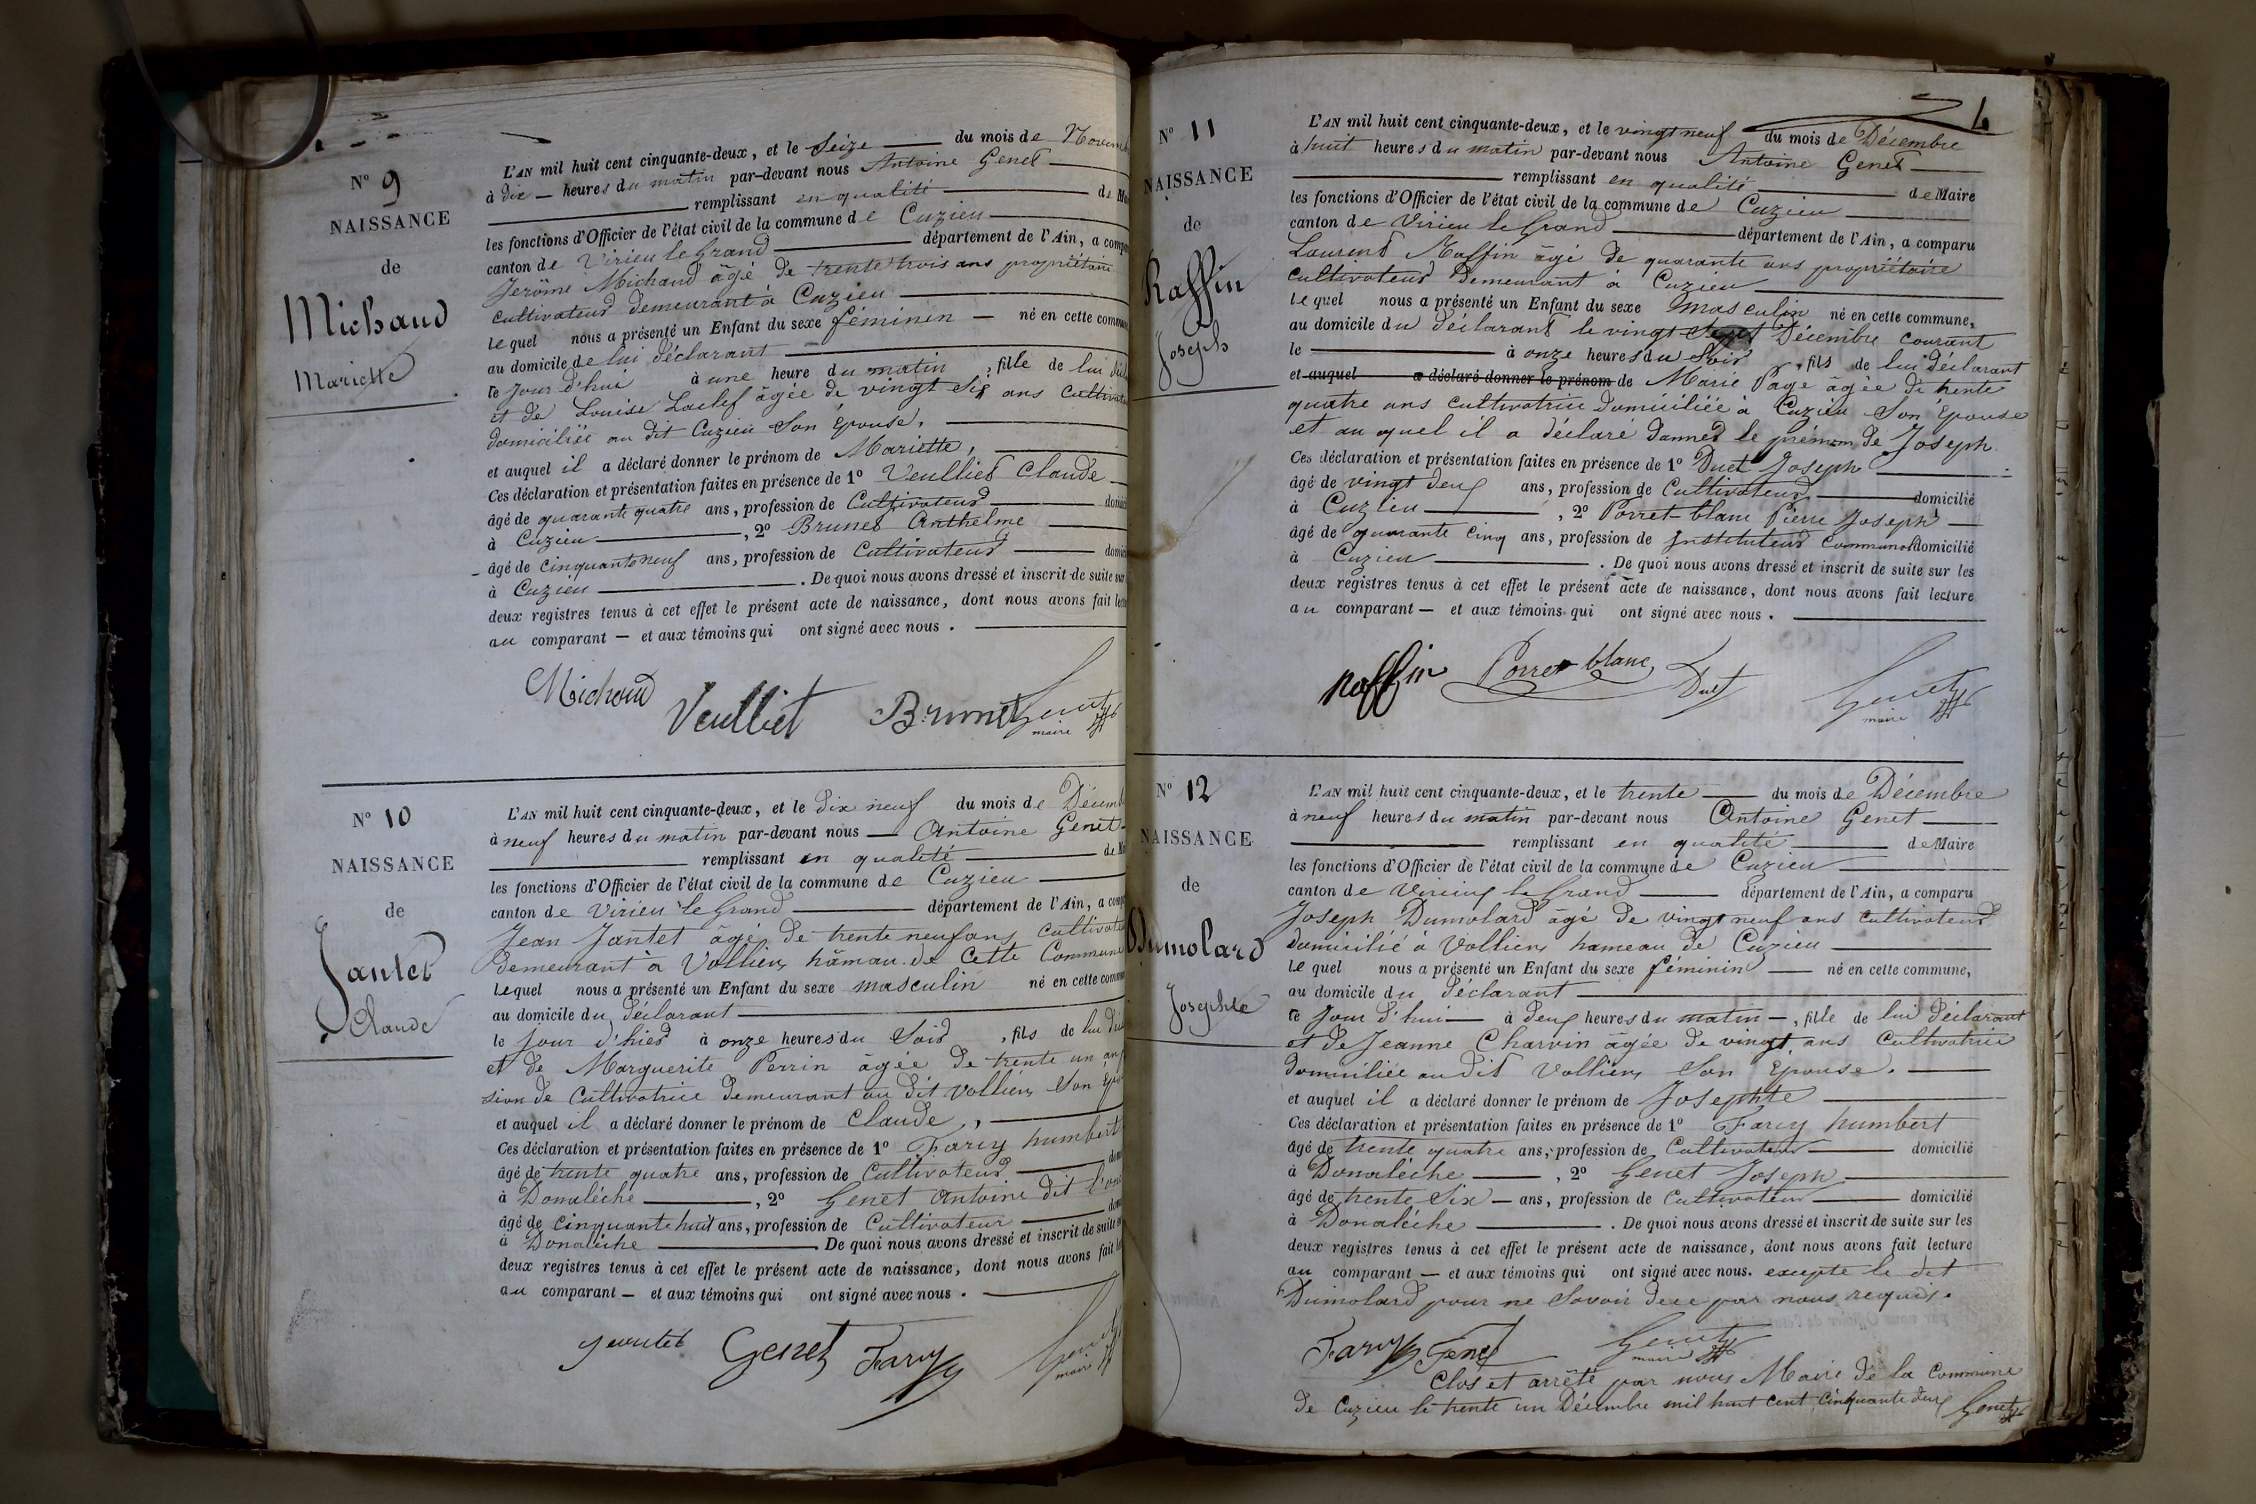 N° 9
NAISSANCE
de
Michaud
Mariette
L'AN mil huit cent cinquante-deux, et le Seize du mois de
à dix heures du matin par-devant nous Antoine Genet
remplissant en qualité de
les fonctions d'Officier de l'état civil de la commune de Cuzieu
canton de Virieu le Grand département de l'Ain, a
Jerôme Michaud âgé de trente trois ans propriétaire
cultivateur demeurant à Cuzieu
lequel nous a présenté un Enfant du sexe féminin né en cette
au domicile de lui déclarant
le jour d'hui à une heure du matin, fille de lui
et de Louise âgée de vingt six ans
domiciliée au dit Cuzieu Son épouse,
et auquel il a déclaré donner le prénom de Mariette,
Ces déclaration et présentation faites en présence de 1° Veulliet Claude
âgé de quarante quatre ans, profession de Cultivateur
à Cuzieu, 2° Brunet Anthelme
âgé de cinquante neuf ans, profession de Cultivateur
à Cuzieu. De quoi nous avons dressé et inscrit de suite sur
deux registres tenus à cet effet le présent acte de naissance, dont nous avons fait
au comparant et aux témoins qui ont signé avec nous.
Michaud Veulliet Brunet Genet
maire
N° 10
NAISSANCE
de
Jantet
Claude
L'AN mil huit cent cinquante-deux, et le dix neuf du mois de
à neuf heures du matin par-devant nous Antoine Genet
remplissant en qualité de
les fonctions d'Officier de l'état civil de la commune de Cuzieu
canton de Virieu le Grand département de l'Ain, a
Jean Jantet âgé de trente neuf ans
demeurant à Vollien hamau de Cette Commune
Lequel nous a présenté un Enfant du sexe masculin né en cette
au domicile du déclarant
le jour d'hier à onze heures du Soir, fils de lui
et de Marguerite Perrin âgée de trente un ans
sion de Cultivatrice demeurant au dit Vollien Son
et auquel il a déclaré donner le prénom de Claude,
Ces déclaration et présentation faites en présence de 1° Farcy humbert
âgé de trente quatre ans, profession de Cultivateur
à Donalèche, 2° Genet Antoine dit
âgé de cinquante huit ans, profession de Cultivateur
à Donalèche De quoi nous avons dressé et inscrit de suite
deux registres tenus à cet effet le présent acte de naissance, dont nous avons fait
au comparant et aux témoins qui ont signé avec nous.
Genet Farcy Genet
maire
N° 11
NAISSANCE
de
Raffin
Joseph
L'AN mil huit cent cinquante-deux, et le vingt neuf du mois de Décembre
à huit heures du matin par-devant nous Antoine Genet
remplissant en qualité de Maire
les fonctions d'Officier de l'état civil de la commune de Cuzieu
canton de Virieu le Grand département de l'Ain, a comparu
Laurent Raffin âgé de quarante ans propriétaire
cultivateur demeurant à Cuzieu
lequel nous a présenté un Enfant du sexe masculin né en cette commune,
au domicile du déclarant le vingt Sept Décembre courant
le à onze heures du Soir, fils de lui déclarant
et auquel a déclaré donner le prénom de Marie Page âgée de trente
quatre ans cultivatrice domiciliée à Cuzieu Son épouse
et au quel il a déclaré donner le prénom de Joseph
Ces déclaration et présentation faites en présence de 1° Duet Joseph
âgé de vingt deux ans, profession de Cultivateur domicilié
à Cuzieu, 2° Porret-blanc Pierre Joseph
âgé de quarante cinq ans, profession de Instituteur Communal domicilié
à Cuzieu. De quoi nous avons dressé et inscrit de suite sur les
deux registres tenus à cet effet le présent acte de naissance, dont nous avons fait lecture
au comparant et aux témoins qui ont signé avec nous.
Raffin Porret-blanc Duet Genet
maire
N° 12
NAISSANCE
de
Dumolard
Josephte
L'AN mil huit cent cinquante-deux, et le trente du mois de Décembre
à neuf heures du matin par-devant nous Antoine Genet
remplissant en qualité de Maire
les fonctions d'Officier de l'état civil de la commune de Cuzieu
canton de Virieu le Grand département de l'Ain, a comparu
Joseph Dumolard âgé de vingt neuf ans cultivateur
domicilié à Vollien hameau de Cuzieu
lequel nous a présenté un Enfant du sexe féminin né en cette commune,
au domicile du déclarant
le jour d'hui à deux heures du matin, fille de lui déclarant
et de Jeanne Charvin âgée de vingt ans Cultivatrice
domiciliée au dit Vollien Son épouse.
et auquel il a déclaré donner le prénom de Josephte
Ces déclaration et présentation faites en présence de 1° Farcy humbert
âgé de trente quatre ans, profession de Cultivateur domicilié
à Donalèche, 2° Genet Joseph
âgé de trente six ans, profession de Cultivateur domicilié
à Donalèche. De quoi nous avons dressé et inscrit de suite sur les
deux registres tenus à cet effet le présent acte de naissance, dont nous avons fait lecture
au comparant et aux témoins qui ont signé avec nous. excepté le dit
Dumolard pour ne Savoir de ce par nous requis.
Farcy Genet Genet
maire
Clos et arrêté par nous Maire de la Commune
de Cuzieu le trente un Décembre mil huit cent cinquante deux Genet